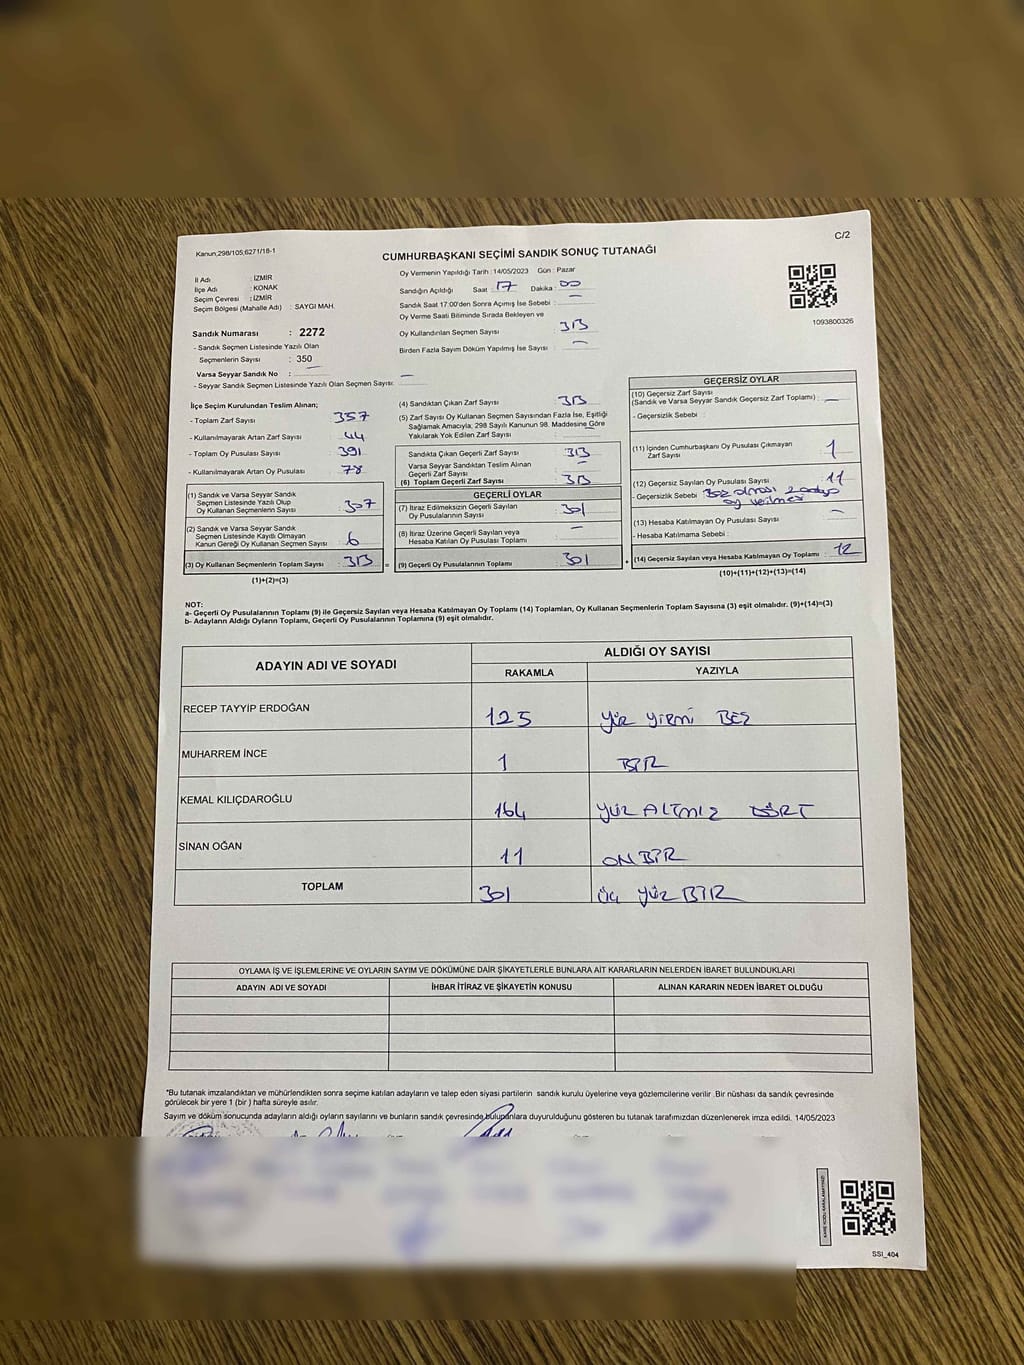 Kanun,298/105;6271/18-1
C/2
CUMHURBAŞKANI SEÇİMİ SANDIK SONUÇ TUTANAĞI
İl Adı : İZMİR
İlçe Adı : KONAK
Seçim Çevresi : İZMİR
Seçim Bölgesi (Mahalle Adı) : SAYGI MAH.
Sandık Numarası : 2272
- Sandık Seçmen Listesinde Yazılı Olan
Seçmenlerin Sayısı : 350
Varsa Seyyar Sandık No :
- Seyyar Sandık Seçmen Listesinde Yazılı Olan Seçmen Sayısı: —
Oy Vermenin Yapıldığı Tarih : 14/05/2023 Gün : Pazar
Sandığın Açıldığı Saat : 17 Dakika : 00
Sandık Saat 17:00'den Sonra Açımış İse Sebebi : —
Oy Verme Saati Bitiminde Sırada Bekleyen ve
Oy Kullandırılan Seçmen Sayısı : 313
Birden Fazla Sayım Döküm Yapılmış İse Sayısı : —
1093800326
İlçe Seçim Kurulundan Teslim Alınan;
- Toplam Zarf Sayısı : 357
- Kullanılmayarak Artan Zarf Sayısı : 44
- Toplam Oy Pusulası Sayısı : 391
- Kullanılmayarak Artan Oy Pusulası : 78
(1) Sandık ve Varsa Seyyar Sandık
Seçmen Listesinde Yazılı Olup
Oy Kullanan Seçmenlerin Sayısı : 307
(2) Sandık ve Varsa Seyyar Sandık
Seçmen Listesinde Kayıtlı Olmayan
Kanun Gereği Oy Kullanan Seçmen Sayısı : 6
(3) Oy Kullanan Seçmenlerin Toplam Sayısı : 313
(1)+(2)=(3)
(4) Sandıktan Çıkan Zarf Sayısı : 313
(5) Zarf Sayısı Oy Kullanan Seçmen Sayısından Fazla İse, Eşitliği
Sağlamak Amacıyla, 298 Sayılı Kanunun 98. Maddesine Göre
Yakılarak Yok Edilen Zarf Sayısı : —
Sandıkta Çıkan Geçerli Zarf Sayısı : 313
Varsa Seyyar Sandıktan Teslim Alınan
Geçerli Zarf Sayısı : —
(6) Toplam Geçerli Zarf Sayısı : 313
GEÇERLİ OYLAR
(7) İtiraz Edilmeksizin Geçerli Sayılan
Oy Pusulalarının Sayısı : 301
(8) İtiraz Üzerine Geçerli Sayılan veya
Hesaba Katılan Oy Pusulası Toplamı : —
(9) Geçerli Oy Pusulalarının Toplamı : 301
GEÇERSİZ OYLAR
(10) Geçersiz Zarf Sayısı
(Sandık ve Varsa Seyyar Sandık Geçersiz Zarf Toplamı) : —
- Geçersizlik Sebebi :
(11) İçinden Cumhurbaşkanı Oy Pusulası Çıkmayan
Zarf Sayısı : 1
(12) Geçersiz Sayılan Oy Pusulası Sayısı : 11
- Geçersizlik Sebebi : Boş olması 2 adaya
oy verilmesi
(13) Hesaba Katılmayan Oy Pusulası Sayısı : —
- Hesaba Katılmama Sebebi :
(14) Geçersiz Sayılan veya Hesaba Katılmayan Oy Toplamı : 12
(10)+(11)+(12)+(13)=(14)
NOT:
a- Geçerli Oy Pusulalarının Toplamı (9) ile Geçersiz Sayılan veya Hesaba Katılmayan Oy Toplamı (14) Toplamları, Oy Kullanan Seçmenlerin Toplam Sayısına (3) eşit olmalıdır. (9)+(14)=(3)
b- Adayların Aldığı Oyların Toplamı, Geçerli Oy Pusulalarının Toplamına (9) eşit olmalıdır.
ADAYIN ADI VE SOYADI
ALDIĞI OY SAYISI
RAKAMLA YAZIYLA
RECEP TAYYİP ERDOĞAN 125 YÜZ YİRMİ BEŞ
MUHARREM İNCE 1 BİR
KEMAL KILIÇDAROĞLU 164 YÜZ ALTMIZ DÖRT
SİNAN OĞAN 11 ON BİR
TOPLAM 301 ÜÇ YÜZ BİR
OYLAMA İŞ VE İŞLEMLERİNE VE OYLARIN SAYIM VE DÖKÜMÜNE DAİR ŞİKAYETLERLE BUNLARA AİT KARARLARIN NELERDEN İBARET BULUNDUKLARI
ADAYIN ADI VE SOYADI İHBAR İTİRAZ VE ŞİKAYETİN KONUSU ALINAN KARARIN NEDEN İBARET OLDUĞU
*Bu tutanak imzalandıktan ve mühürlendikten sonra seçime katılan adayların ve talep eden siyasi partilerin sandık kurulu üyelerine veya gözlemcilerine verilir .Bir nüshası da sandık çevresinde
görülecek bir yere 1 (bir ) hafta süreyle asılır.
Sayım ve döküm sonucunda adayların aldığı oyların sayılarını ve bunların sandık çevresinde bulunanlara duyurulduğunu gösteren bu tutanak tarafımızdan düzenlenerek imza edildi. 14/05/2023
SSI_404